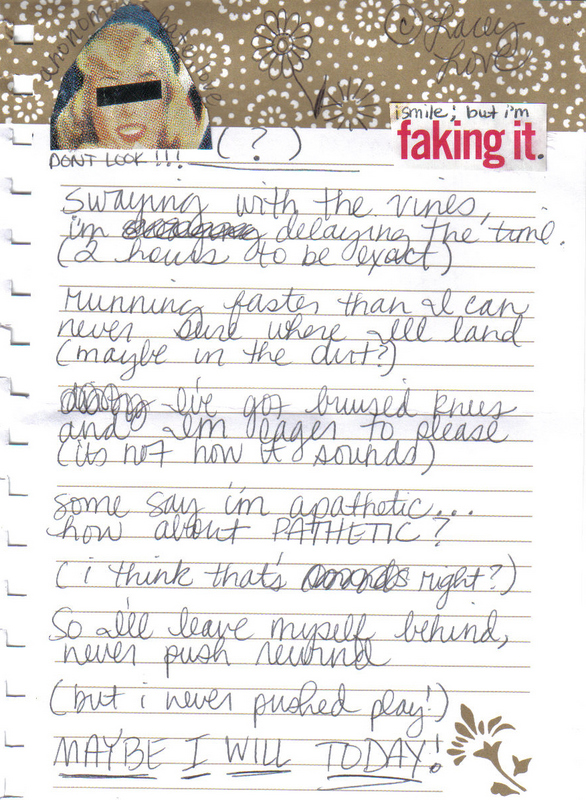 © Lacey
Love
i smile; but i'm
faking it.
(?)
DONT LOOK!!!
swaying with the vines,
i'm delaying the time.
(2 hours to be exact)
running faster than I can
never sure where I'll land
(maybe in the dirt?)
I've got bruised knees
and I'm eager to please
(its not how it sounds)
some say i'm apathetic...
how about PATHETIC?
(i think that's right?)
So I'll leave myself behind,
never push rewind
(but i never pushed play!)
MAYBE I WILL TODAY!